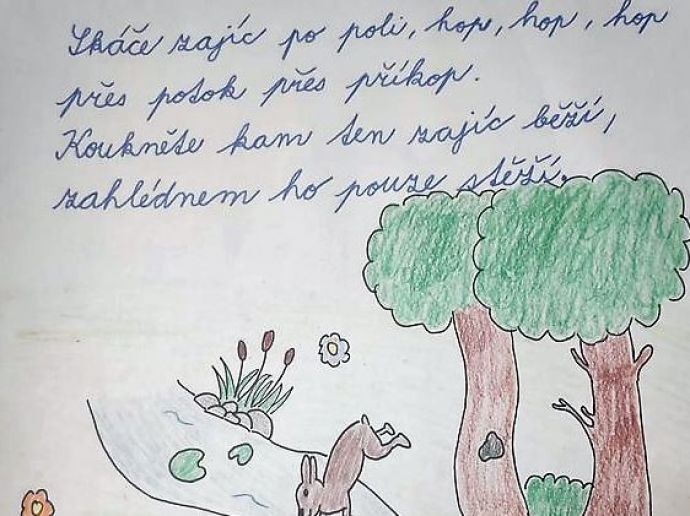 Skáče zajíc po poli, hop, hop, hop
přes potok přes příkop.
Koukněte kam ten zajíc běží,
zahlédnem ho pouze stěží.